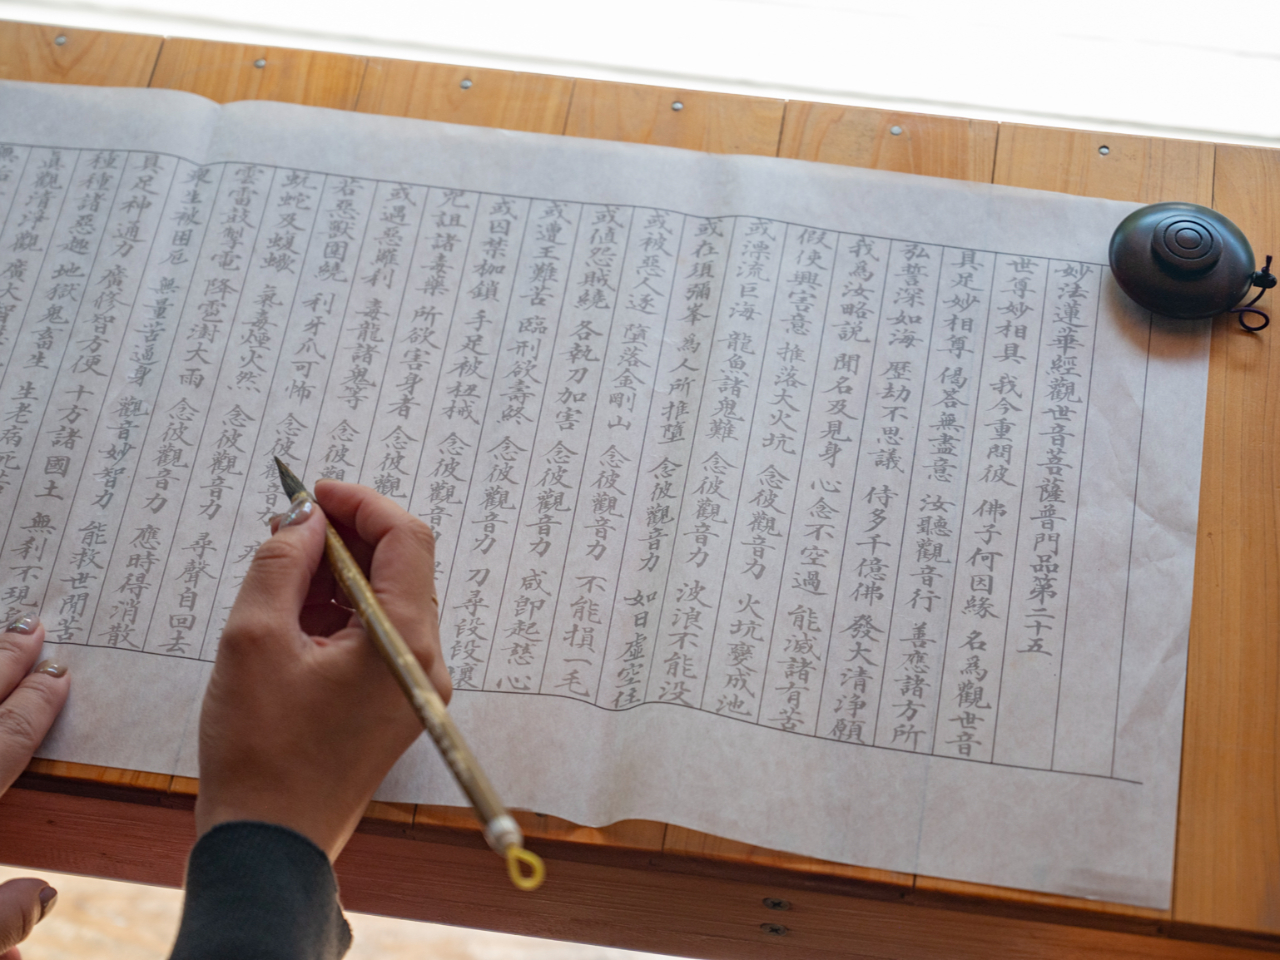 妙法蓮華經觀世音菩薩普門品第二十五
世尊妙相具 我今重問彼 佛子何因緣 名為觀世音
具足妙相尊 偈答無盡意 汝聽觀音行 善應諸方所
弘誓深如海 歷劫不思議 侍多千億佛 發大清淨願
我為汝略說 聞名及見身 心念不空過 能滅諸有苦
假使興害意 推落大火坑 念彼觀音力 火坑變成池
或漂流巨海 龍魚諸鬼難 念彼觀音力 波浪不能沒
或在須彌峯 為人所推墮 念彼觀音力 如日虛空住
或被惡人逐 墮落金剛山 念彼觀音力 不能損一毛
或值怨賊繞 各執刀加害 念彼觀音力 咸即起慈心
或遭王難苦 臨刑欲壽終 念彼觀音力 刀尋段段壞
或囚禁枷鎖 手足被杻械 念彼觀音力
咒詛諸毒藥 所欲害身者 念彼觀
或遇惡羅剎 毒龍諸鬼等 念彼觀
若惡獸圍繞 利牙爪可怖 念彼觀音力
蚖蛇及蝮蠍 氣毒煙火然 念彼觀音力 尋聲自回去
雲雷鼓掣電 降雹澍大雨 念彼觀音力 應時得消散
眾生被困厄 無量苦逼身 觀音妙智力 能救世間苦
具足神通力 廣修智方便 十方諸國土 無剎不現身
種種諸惡趣 地獄鬼畜生 生老病死苦
真觀清淨觀 廣大智慧